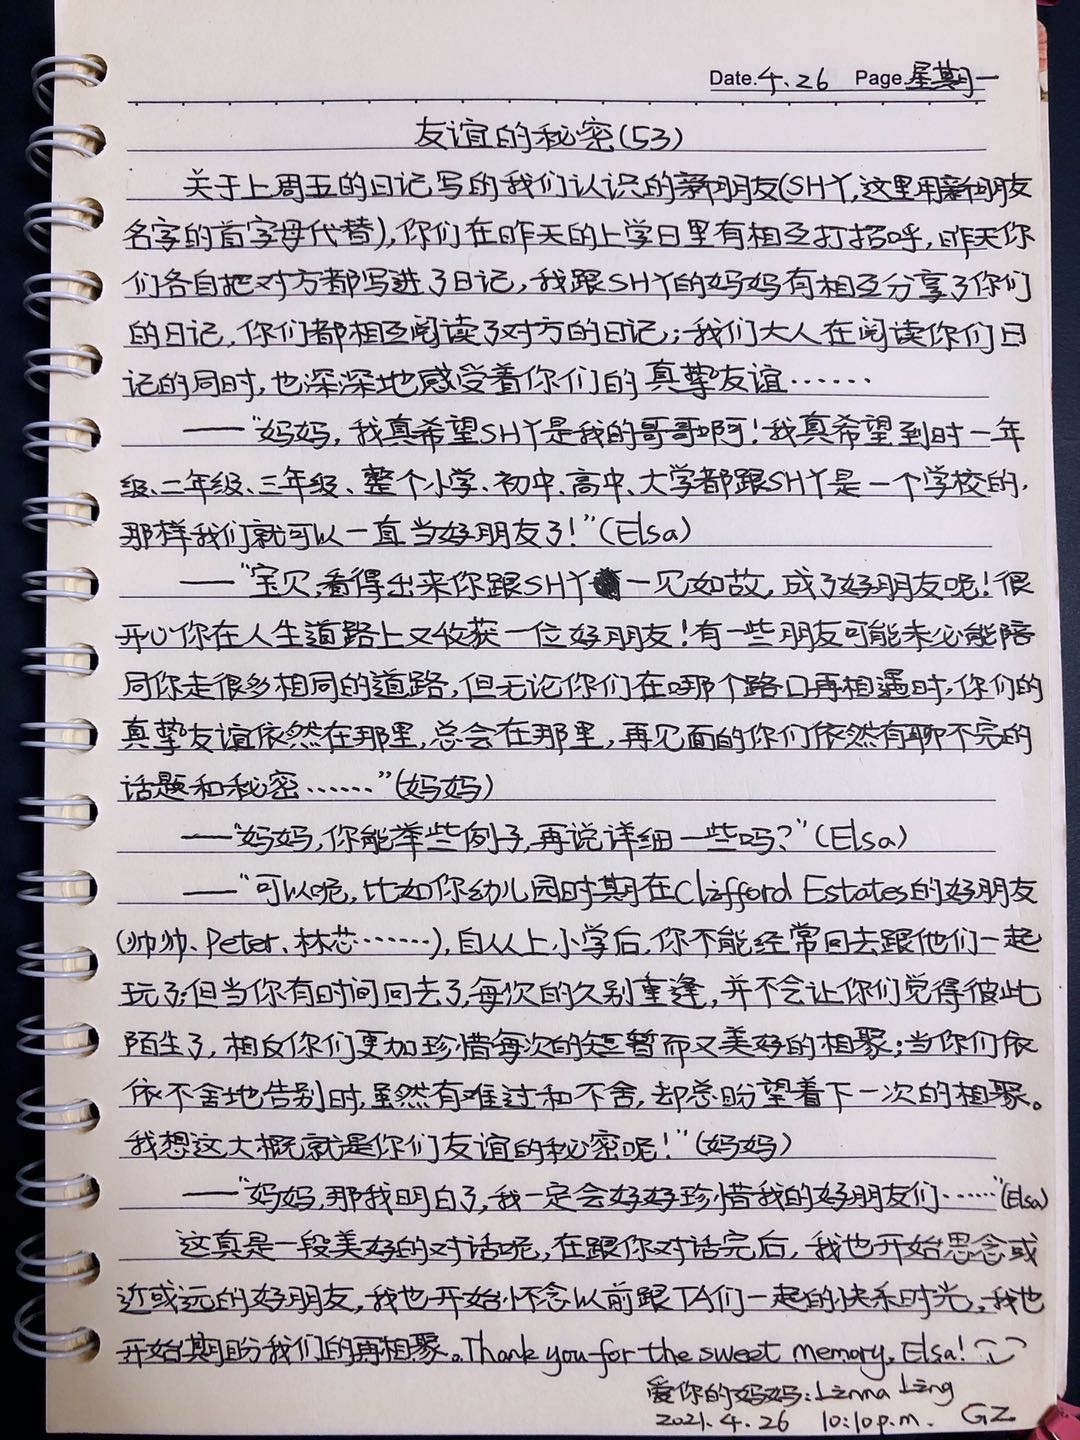 Date. 4.26 Page 星期一
友谊的秘密(53)
关于上周五的日记写的我们认识的新朋友(SHY,这里用新朋友
名字的首字母代替),你们在昨天的上学日里有相互打招呼,昨天你
们各自把对方都写进了日记,我跟SHY的妈妈有相互分享了你们
的日记,你们都相互阅读了对方的日记;我们大人在阅读你们日
记的同时,也深深地感受着你们的真挚友谊……
——“妈妈,我真希望SHY是我的哥哥啊!我真希望到时一年
级、二年级、三年级、整个小学、初中、高中、大学都跟SHY是一个学校的,
那样我们就可以一直当好朋友了!”(Elsa)
——“宝贝,看得出来你跟SHY一见如故,成了好朋友呢!很
开心你在人生道路上又收获一位好朋友!有一些朋友可能未必能陪
同你走很多相同的道路,但无论你们在哪个路口再相遇时,你们的
真挚友谊依然在那里,总会在那里,再见面的你们依然有聊不完的
话题和秘密……”(妈妈)
——“妈妈,你能举些例子,再说详细一些吗?”(Elsa)
——“可以呢,比如你幼儿园时期在Clifford Estates的好朋友
(帅帅、Peter、林芯……),自从上小学后,你不能经常回去跟他们一起
玩了;但当你有时间回去了,每次的久别重逢,并不会让你们觉得彼此
陌生了,相反你们更加珍惜每次的短暂而又美好的相聚;当你们依
依不舍地告别时,虽然有难过和不舍,却总盼望着下一次的相聚。
我想这大概就是你们友谊的秘密呢!”(妈妈)
——“妈妈,那我明白了,我一定会好好珍惜我的好朋友们……”(Elsa)
这真是一段美好的对话呢,在跟你对话完后,我也开始思念或
近或远的好朋友,我也开始怀念以前跟TA们一起的快乐时光,我也
开始期盼我们的再相聚。Thank you for the sweet memory, Elsa!
爱你的妈妈:Linna Ling
2021.4.26 10:10p.m. GZ